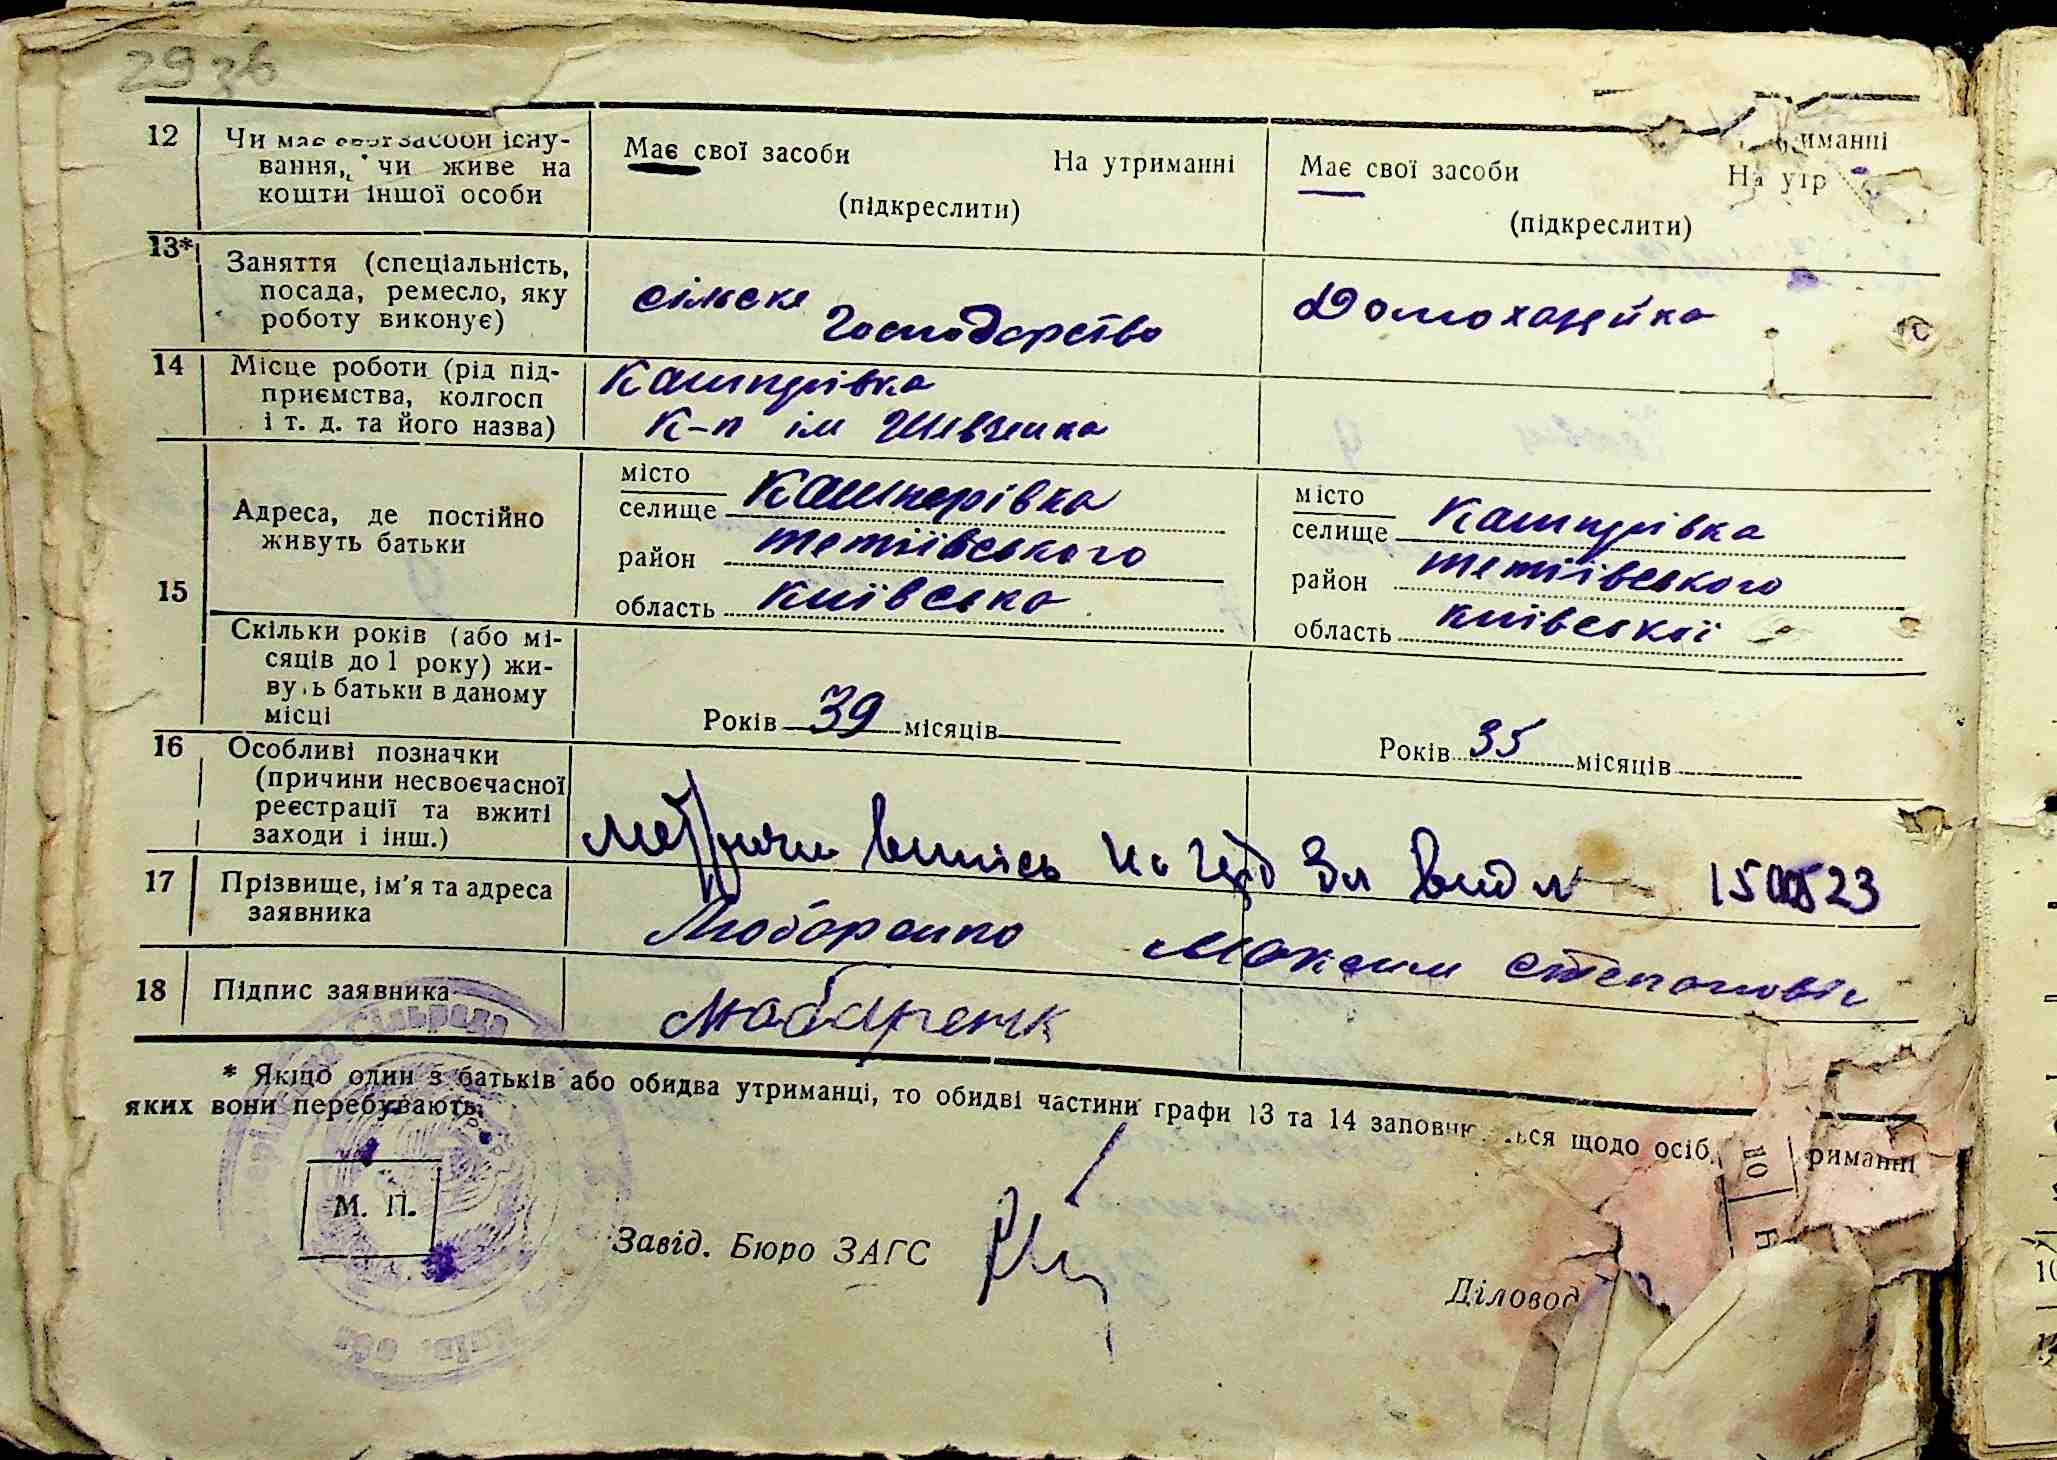 29 зв
12 Чи має свої засоби існу-
вання, чи живе на
кошти іншої особи
Має свої засоби На утриманні
(підкреслити)
Має свої засоби На утр иманні
(підкреслити)
13* Заняття (спеціальність,
посада, ремесло, яку
роботу виконує)
сільске
Господарство
Домохазяйка
14 Місце роботи (рід під-
приємства, колгосп
і т. д. та його назва)
Кашперівка
К-п ім Шевченка
15 Адреса, де постійно
живуть батьки
місто
селище Кашперівка
район тетіївського
область Київська
місто
селище Кашперівка
район тетіївського
область київської
Скільки років (або мі-
сяців до 1 року) жи-
вуть батьки в даному
місці
Років 39 місяців
Років 35 місяців
16 Особливі позначки
(причини несвоєчасної
реєстрації та вжиті
заходи і інш.)
150523
17 Прізвище, ім'я та адреса
заявника
Любаренко Максим Степанович
18 Підпис заявника
Любаренк
* Якщо один з батьків або обидва утриманці, то обидві частини графи 13 та 14 заповн ься щодо осіб, риманні
яких вони перебувають.
М. П.
Завід. Бюро ЗАГС
Діловод